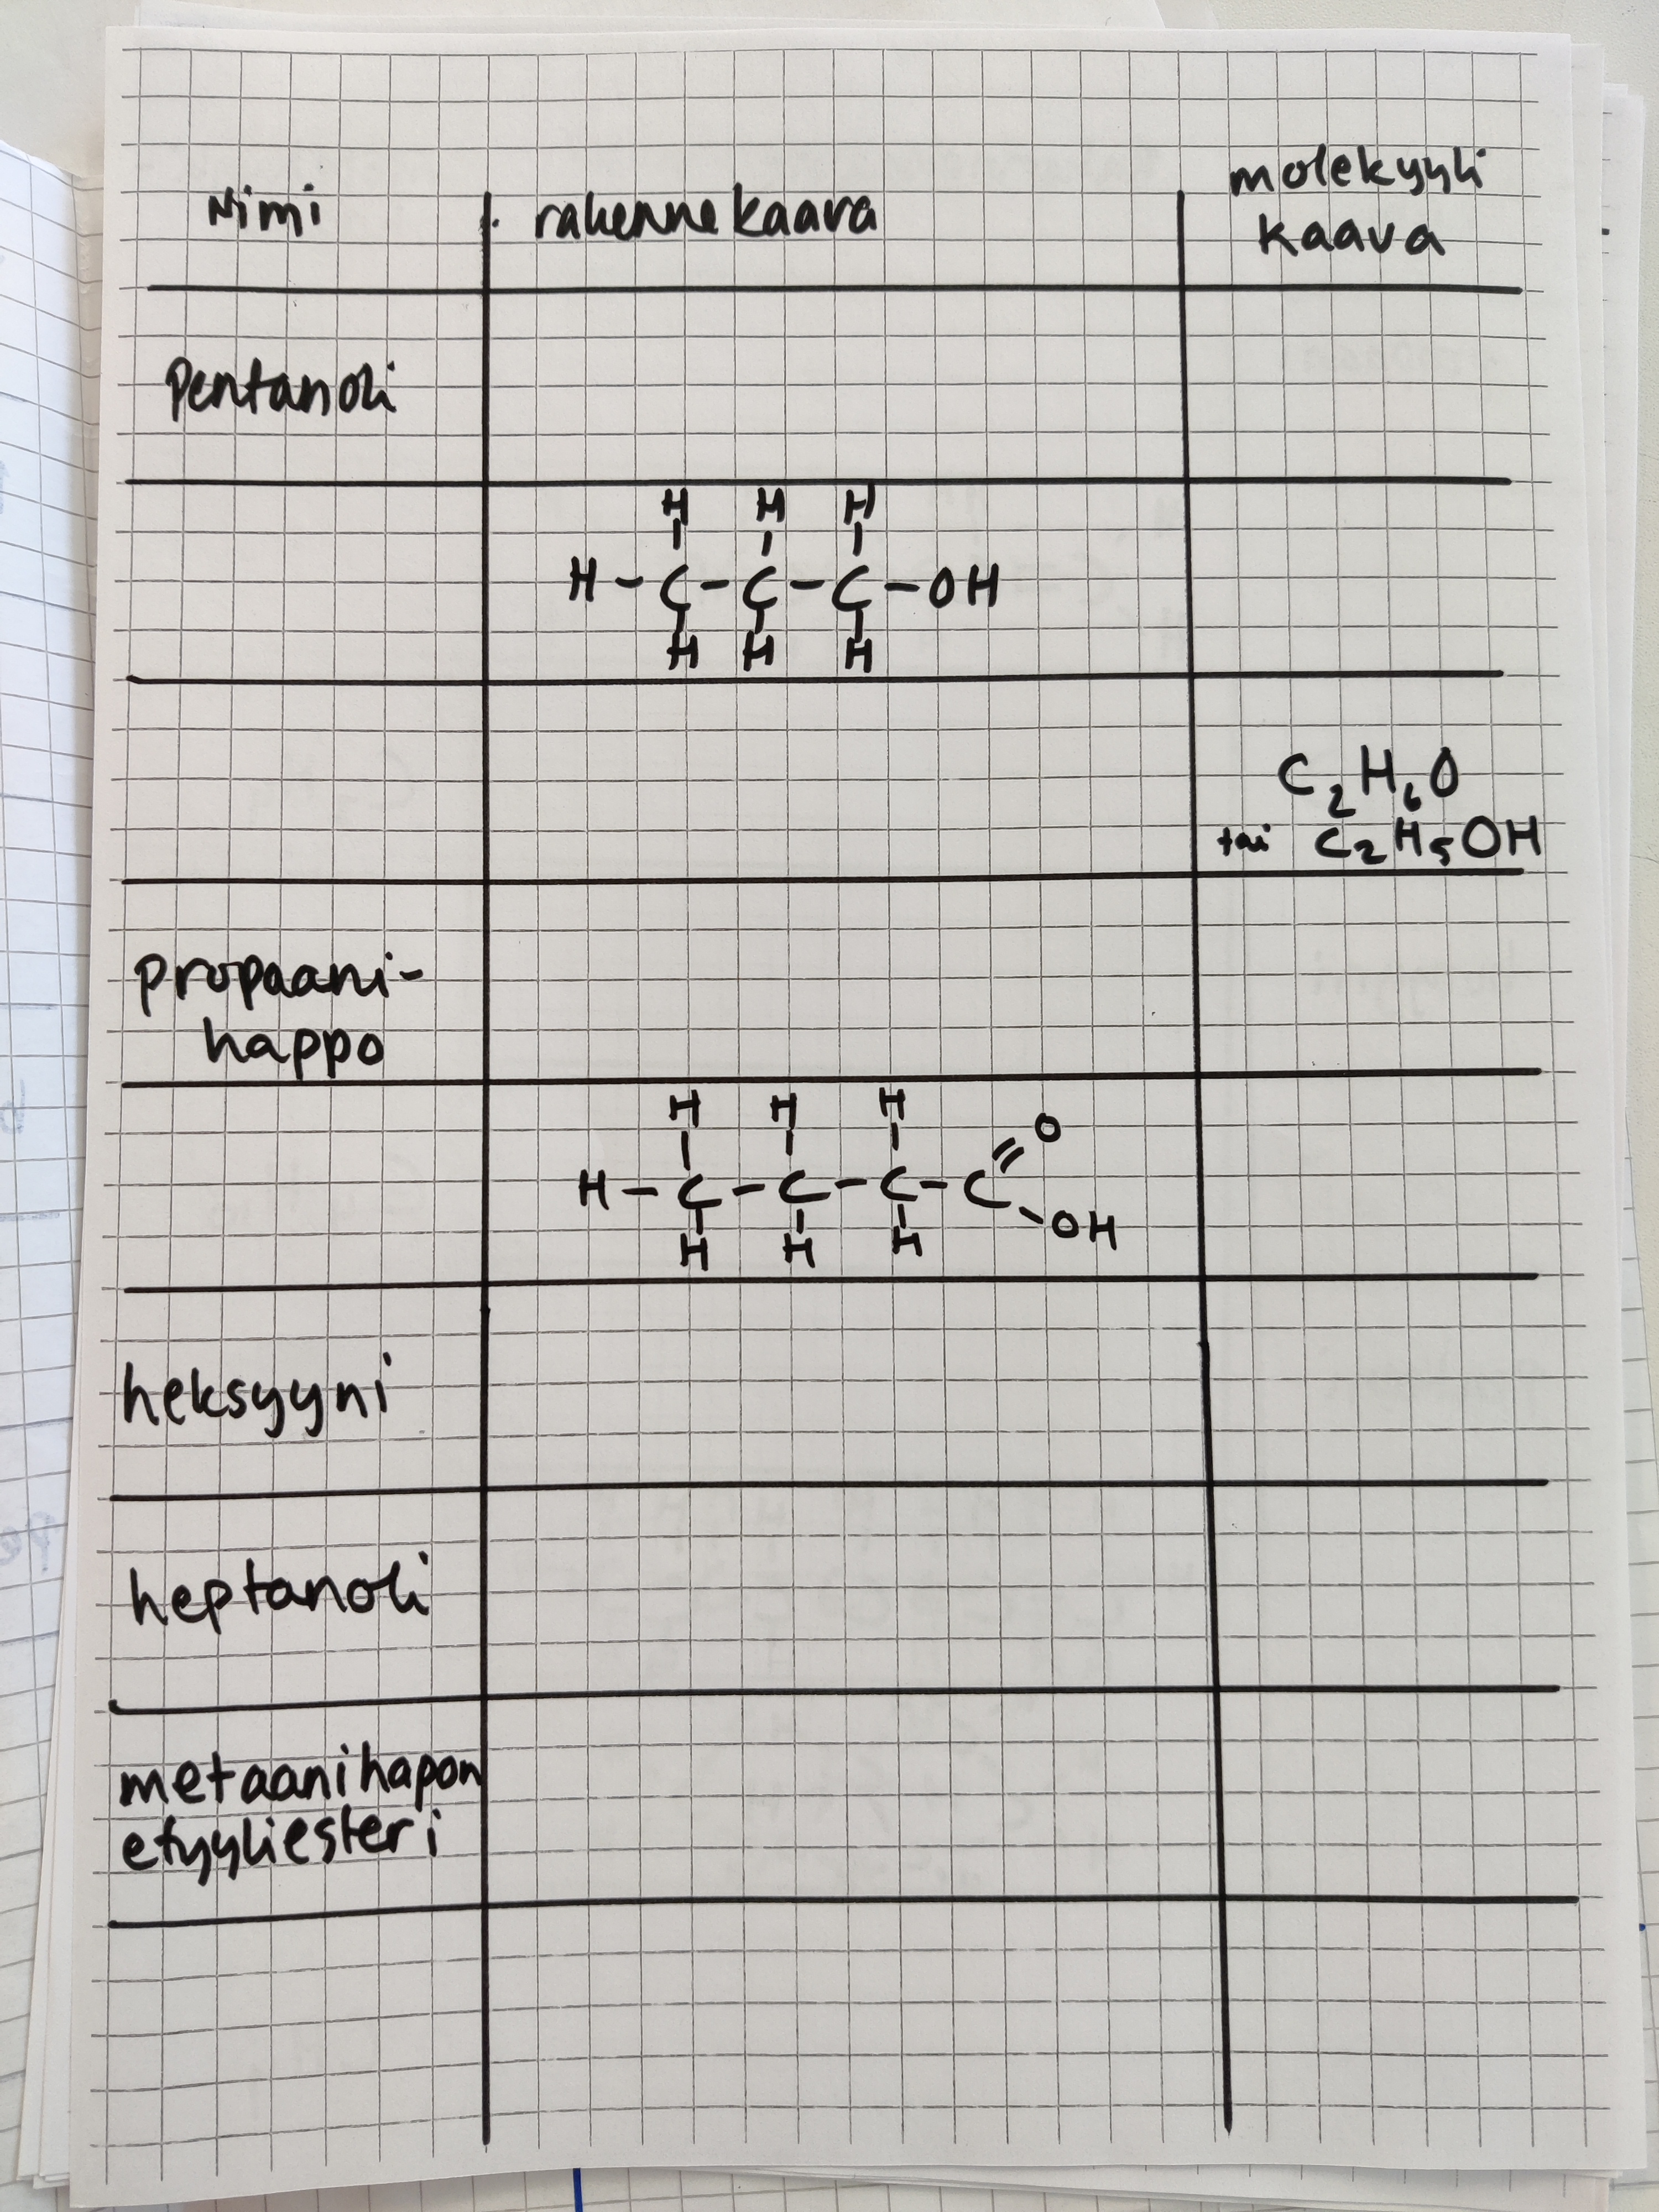 Nimi rakennekaava molekyyli
kaava
Pentanoli
H H H
H-C-C-C-OH
H H H
C₂H₆O
tai C₂H₅OH
propaani-
happo
H H H O
H-C-C-C-C
OH
H H H
heksyyni
heptanoli
metaanihapon
etyyliesteri